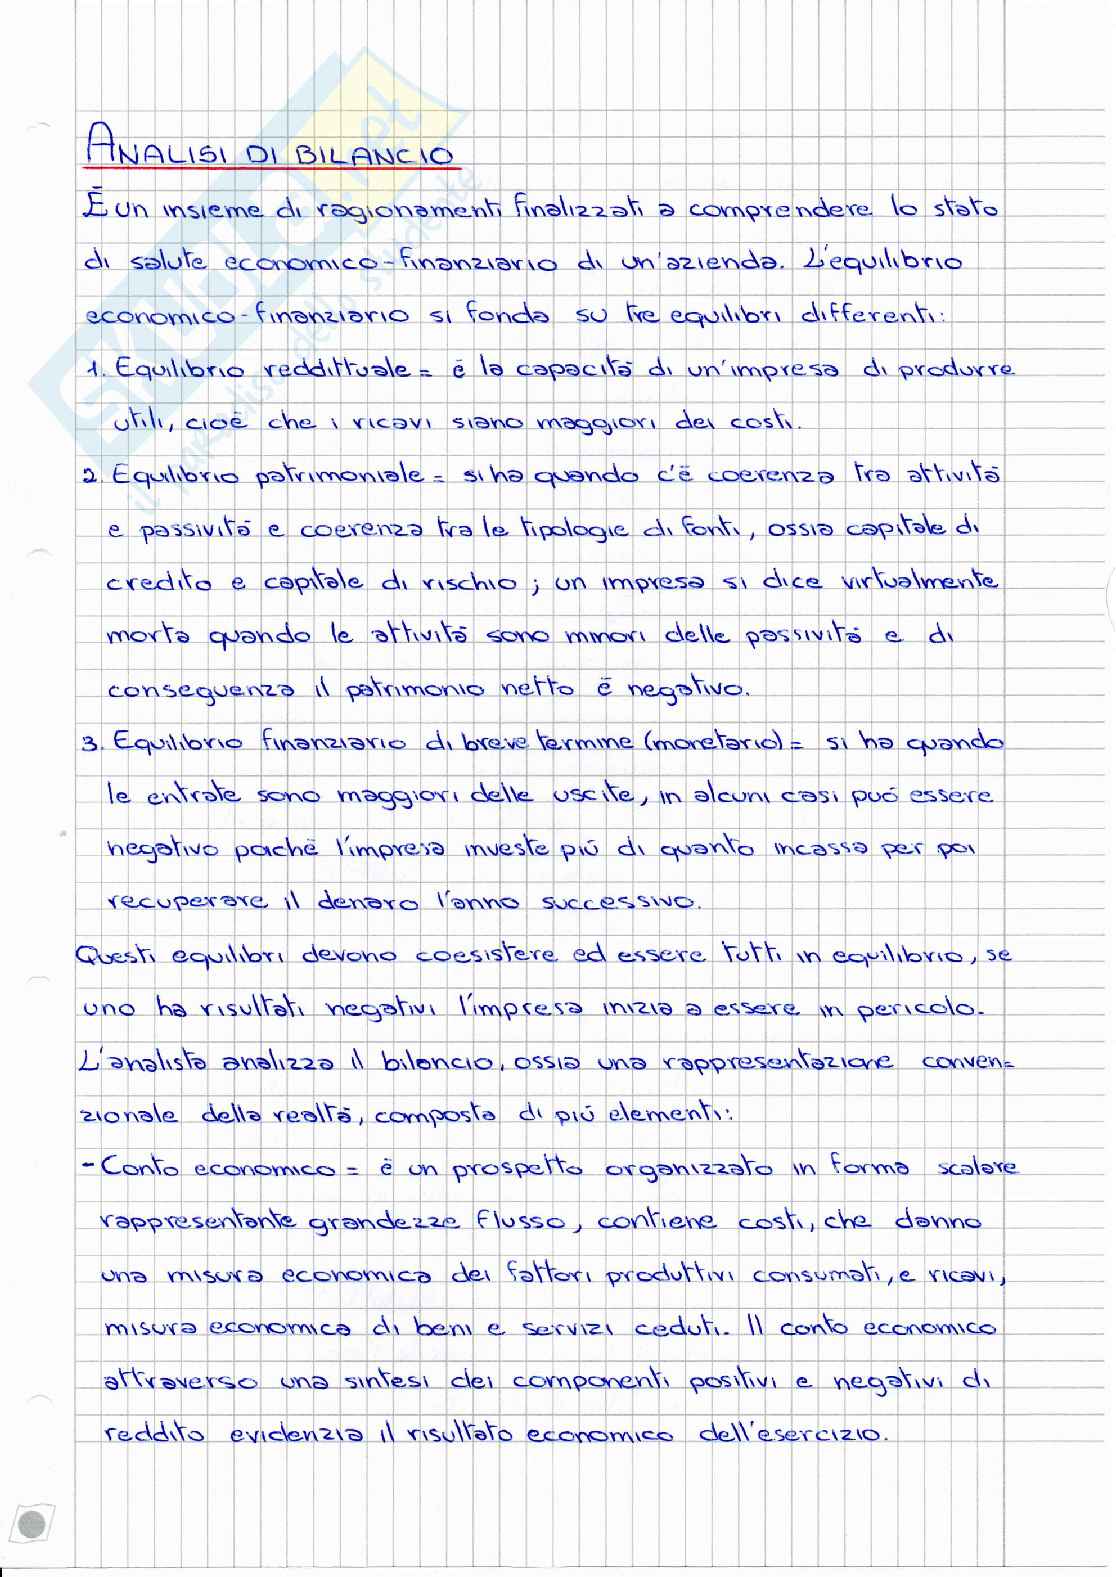 ANALISI DI BILANCIO
È un insieme di ragionamenti finalizzati a comprendere lo stato
di salute economico-finanziario di un'azienda. L'equilibrio
economico-finanziario si fonda su tre equilibri differenti:
1. Equilibrio reddittuale = è la capacità di un'impresa di produrre
utili, cioè che i ricavi siano maggiori dei costi.
2. Equilibrio patrimoniale = si ha quando c'è coerenza tra attività
e passività e coerenza tra le tipologie di fonti, ossia capitale di
credito e capitale di rischio; un impresa si dice virtualmente
morta quando le attività sono minori delle passività e di
conseguenza il patrimonio netto è negativo.
3. Equilibrio finanziario di breve termine (monetario) = si ha quando
le entrate sono maggiori delle uscite, in alcuni casi può essere
negativo poiché l'impresa investe più di quanto incassa per poi
recuperare il denaro l'anno successivo.
Questi equilibri devono coesistere ed essere tutti in equilibrio, se
uno ha risultati negativi l'impresa inizia a essere in pericolo.
L'analista analizza il bilancio, ossia una rappresentazione conven=
zionale della realtà, composta di più elementi:
- Conto economico = è un prospetto organizzato in forma scalare
rappresentante grandezze flusso, contiene costi, che danno
una misura economica dei fattori produttivi consumati, e ricavi,
misura economica di beni e servizi ceduti. Il conto economico
attraverso una sintesi dei componenti positivi e negativi di
reddito evidenzia il risultato economico dell'esercizio.
SKUOLA.net
il paradiso dello studente